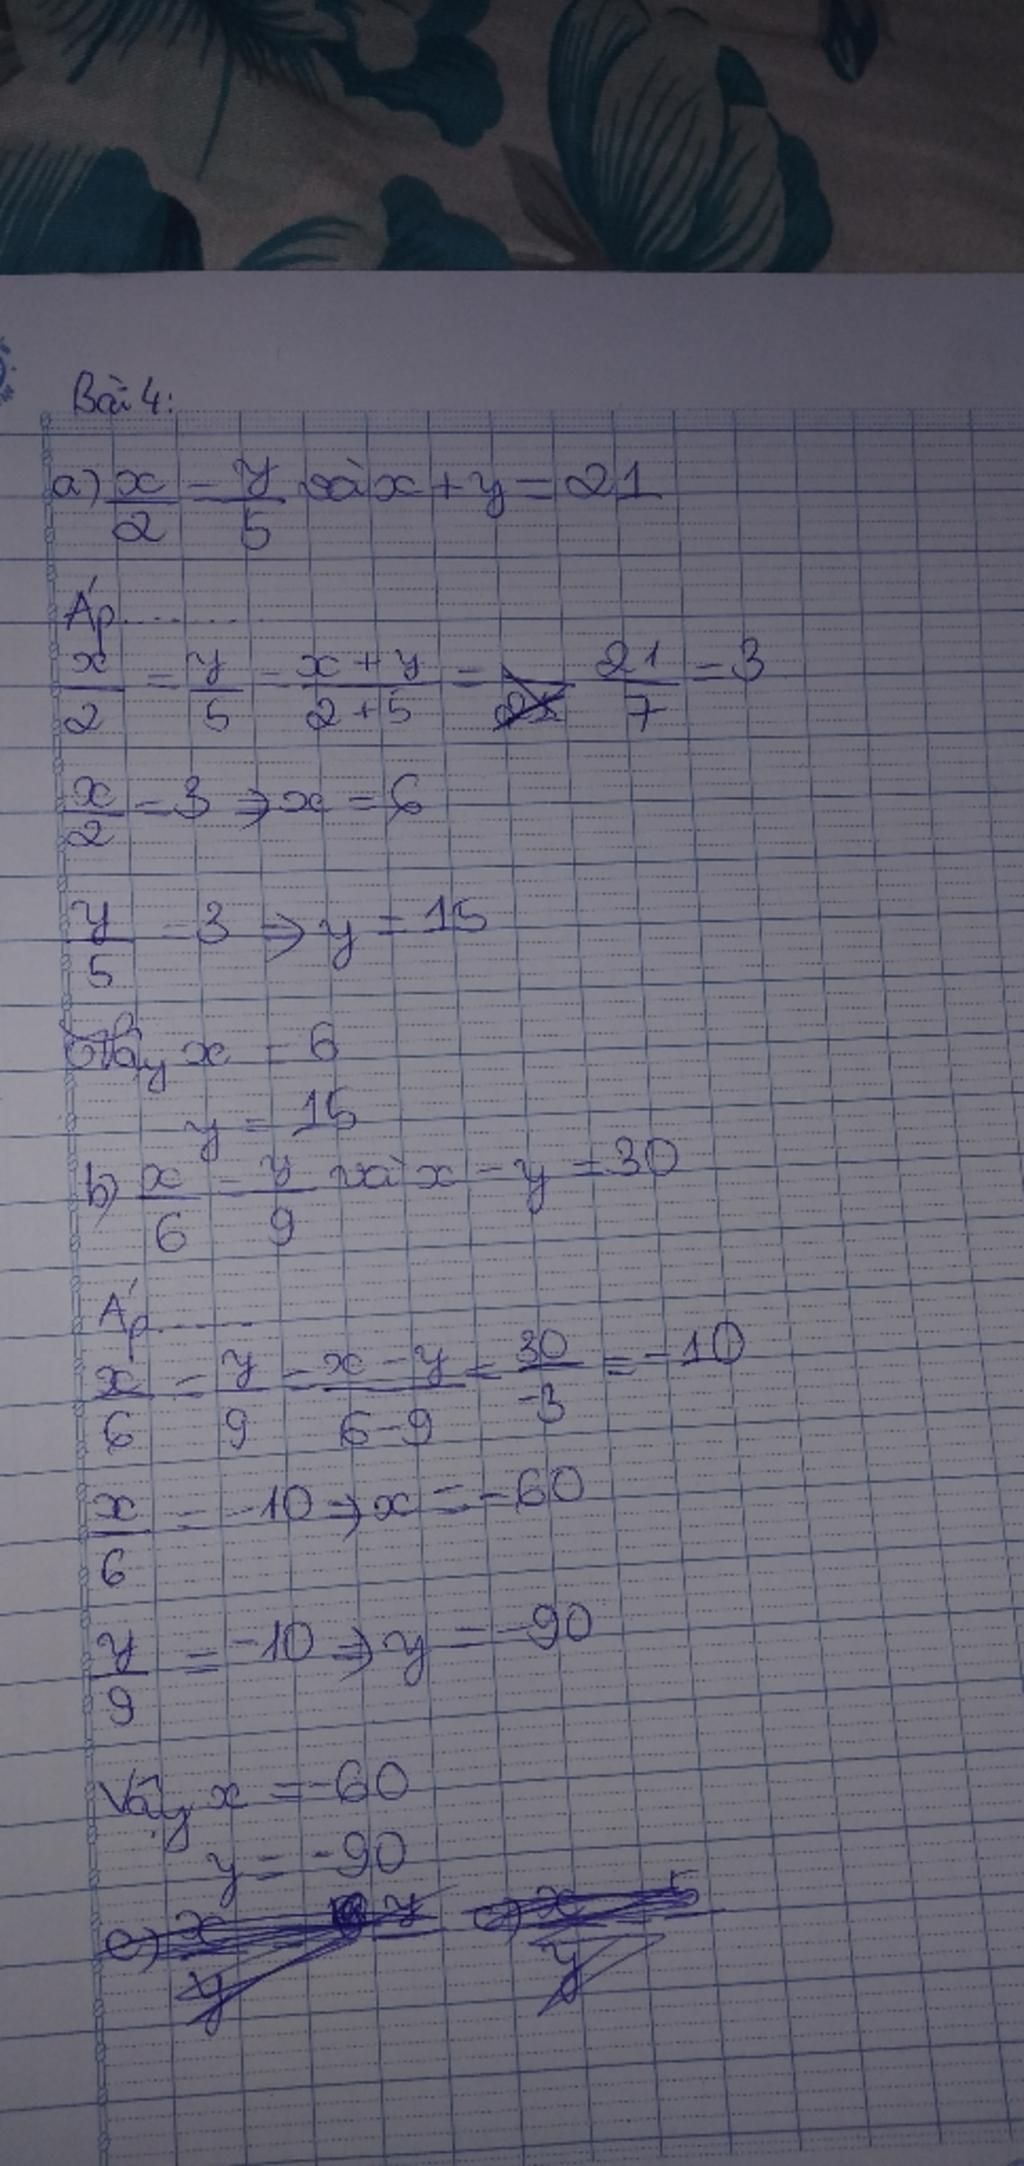 Bài 4:
a) x/2 = y/5 và x + y = 21
Áp..........
x/2 = y/5 = x + y/2 + 5 = 21/7 = 3
x/2 = 3 ⇒ x = 6
y/5 = 3 ⇒ y = 15
Vậy x = 6
y = 15
b) x/6 = y/9 và x - y = 30
Áp..........
x/6 = y/9 = x - y/6 - 9 = 30/-3 = -10
x/6 = -10 ⇒ x = -60
y/9 = -10 ⇒ y = -90
Vậy x = -60
y = -90